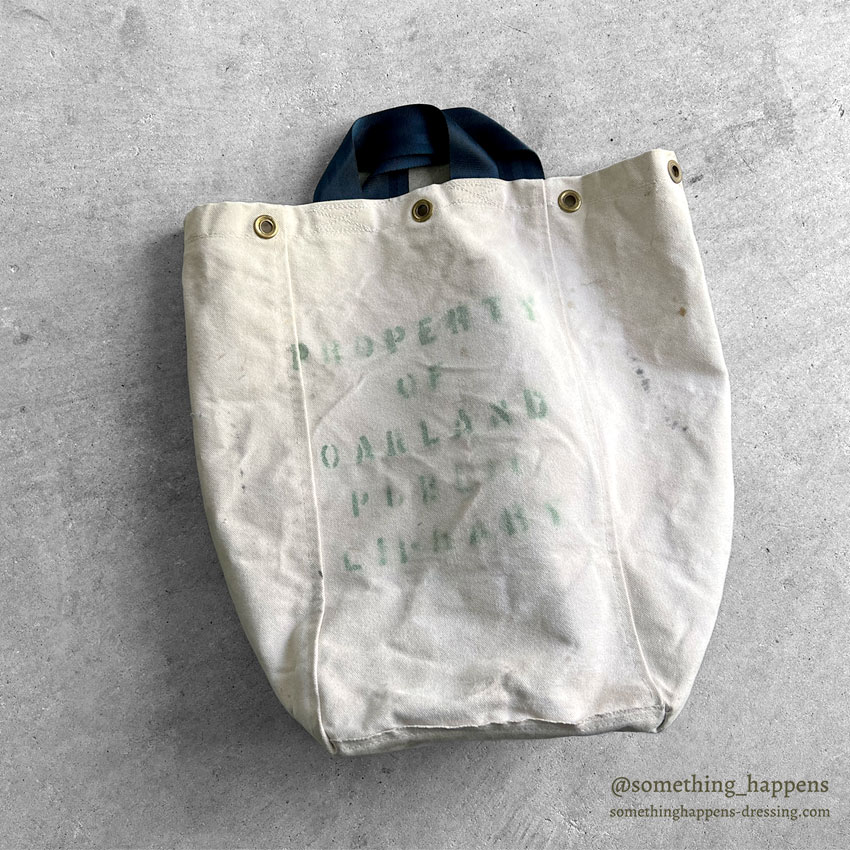 PROPERTY
OF
OAKLAND
PUBLIC
LIBRARY
@something_happens
somethinghappens-dressing.com